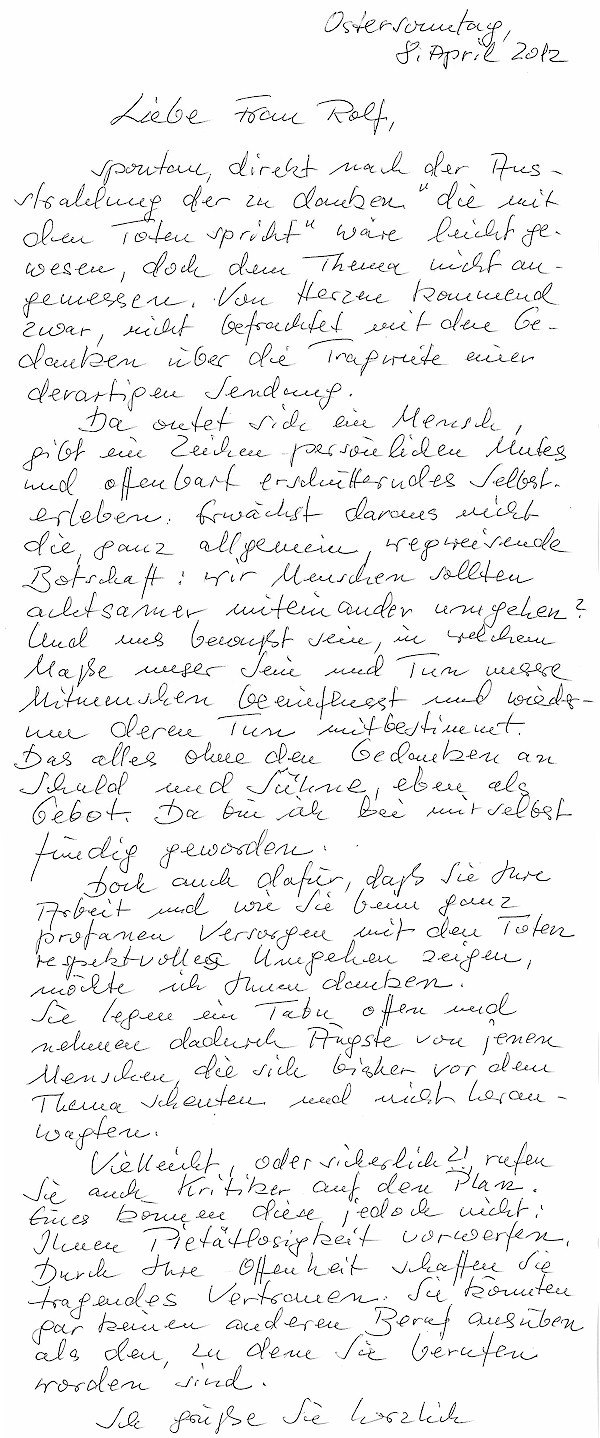 Ostersonntag,
8. April 2012
Liebe Frau Rolf,
spontan, direkt nach der Aus-
strahlung der zu danken "die mit
den Toten spricht" wäre leicht ge-
wesen, doch dem Thema nicht an-
gemessen. Von Herzen kommend
zwar, nicht befrachtet mit dem Ge-
danken über die Tragweite einer
derartigen Sendung.
Da outet sich ein Mensch,
gibt ein Zeichen persönlichen Mutes
und offenbart erschütterndes Selbst-
erleben. Erwächst daraus nicht
die, ganz allgemein, wegweisende
Botschaft: wir Menschen sollten
achtsamer miteinander umgehen?
Und uns bewußt sein, in welchem
Maße unser Sein und Tun unsere
Mitmenschen beeinflusst und wieder-
um deren Tun mitbestimmt.
Das alles ohne den Gedanken an
Schuld und Sühne, eben als
Gebot. Da bin ich bei mir selbst
fündig geworden.
Doch auch dafür, daß Sie Ihre
Arbeit und wie Sie beim ganz
profanen Versorgen mit den Toten
respektvolles Umgehen zeigen,
möchte ich Ihnen danken.
Sie legen ein Tabu offen und
nehmen dadurch Ängste von jenen
Menschen, die sich bisher vor dem
Thema scheuten und nicht heran-
wagten.
Vielleicht, oder sicherlich?!, rufen
Sie auch Kritiker auf den Plan.
Eines können diese jedoch nicht:
Ihnen Pietätlosigkeit vorwerfen.
Durch Ihre Offenheit schaffen Sie
tragendes Vertrauen. Sie könnten
gar keinen anderen Beruf ausüben
als den, zu dem Sie berufen
worden sind.
Ich grüße Sie herzlich